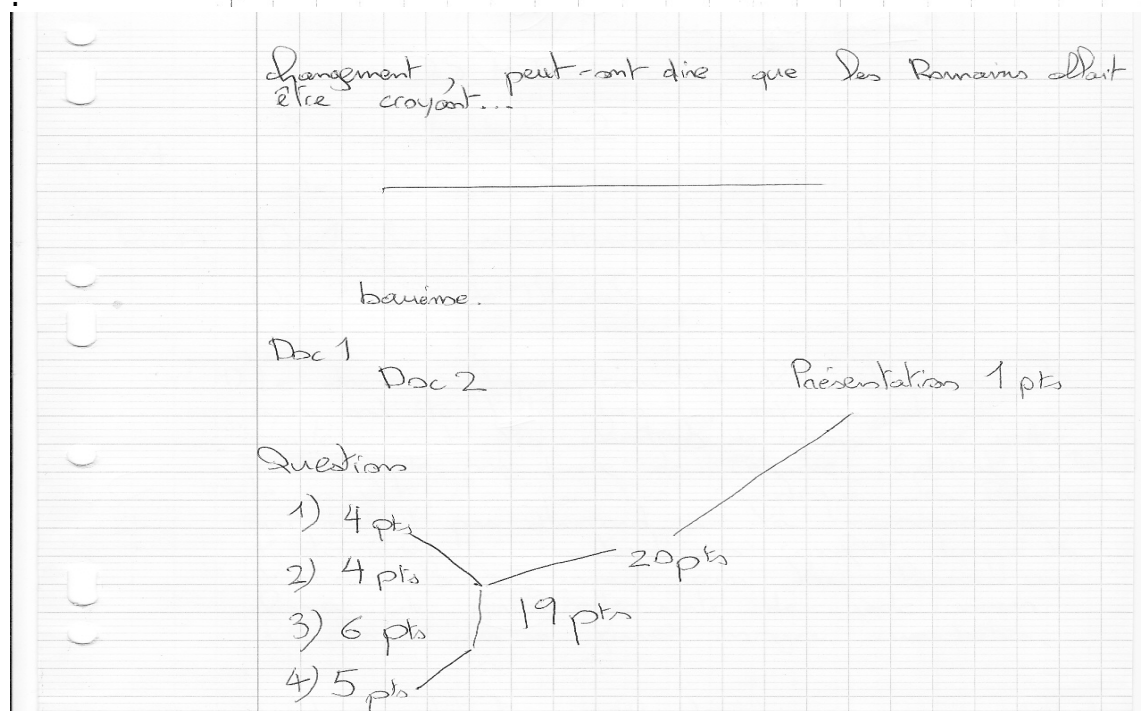 changement, peut-ont dire que les Romains allait
être croyant...
barème.
Doc 1
Doc 2
Présentation 1 pts
Question
1) 4 pts
20 pts
2) 4 pts
19 pts
3) 6 pts
4) 5 pts